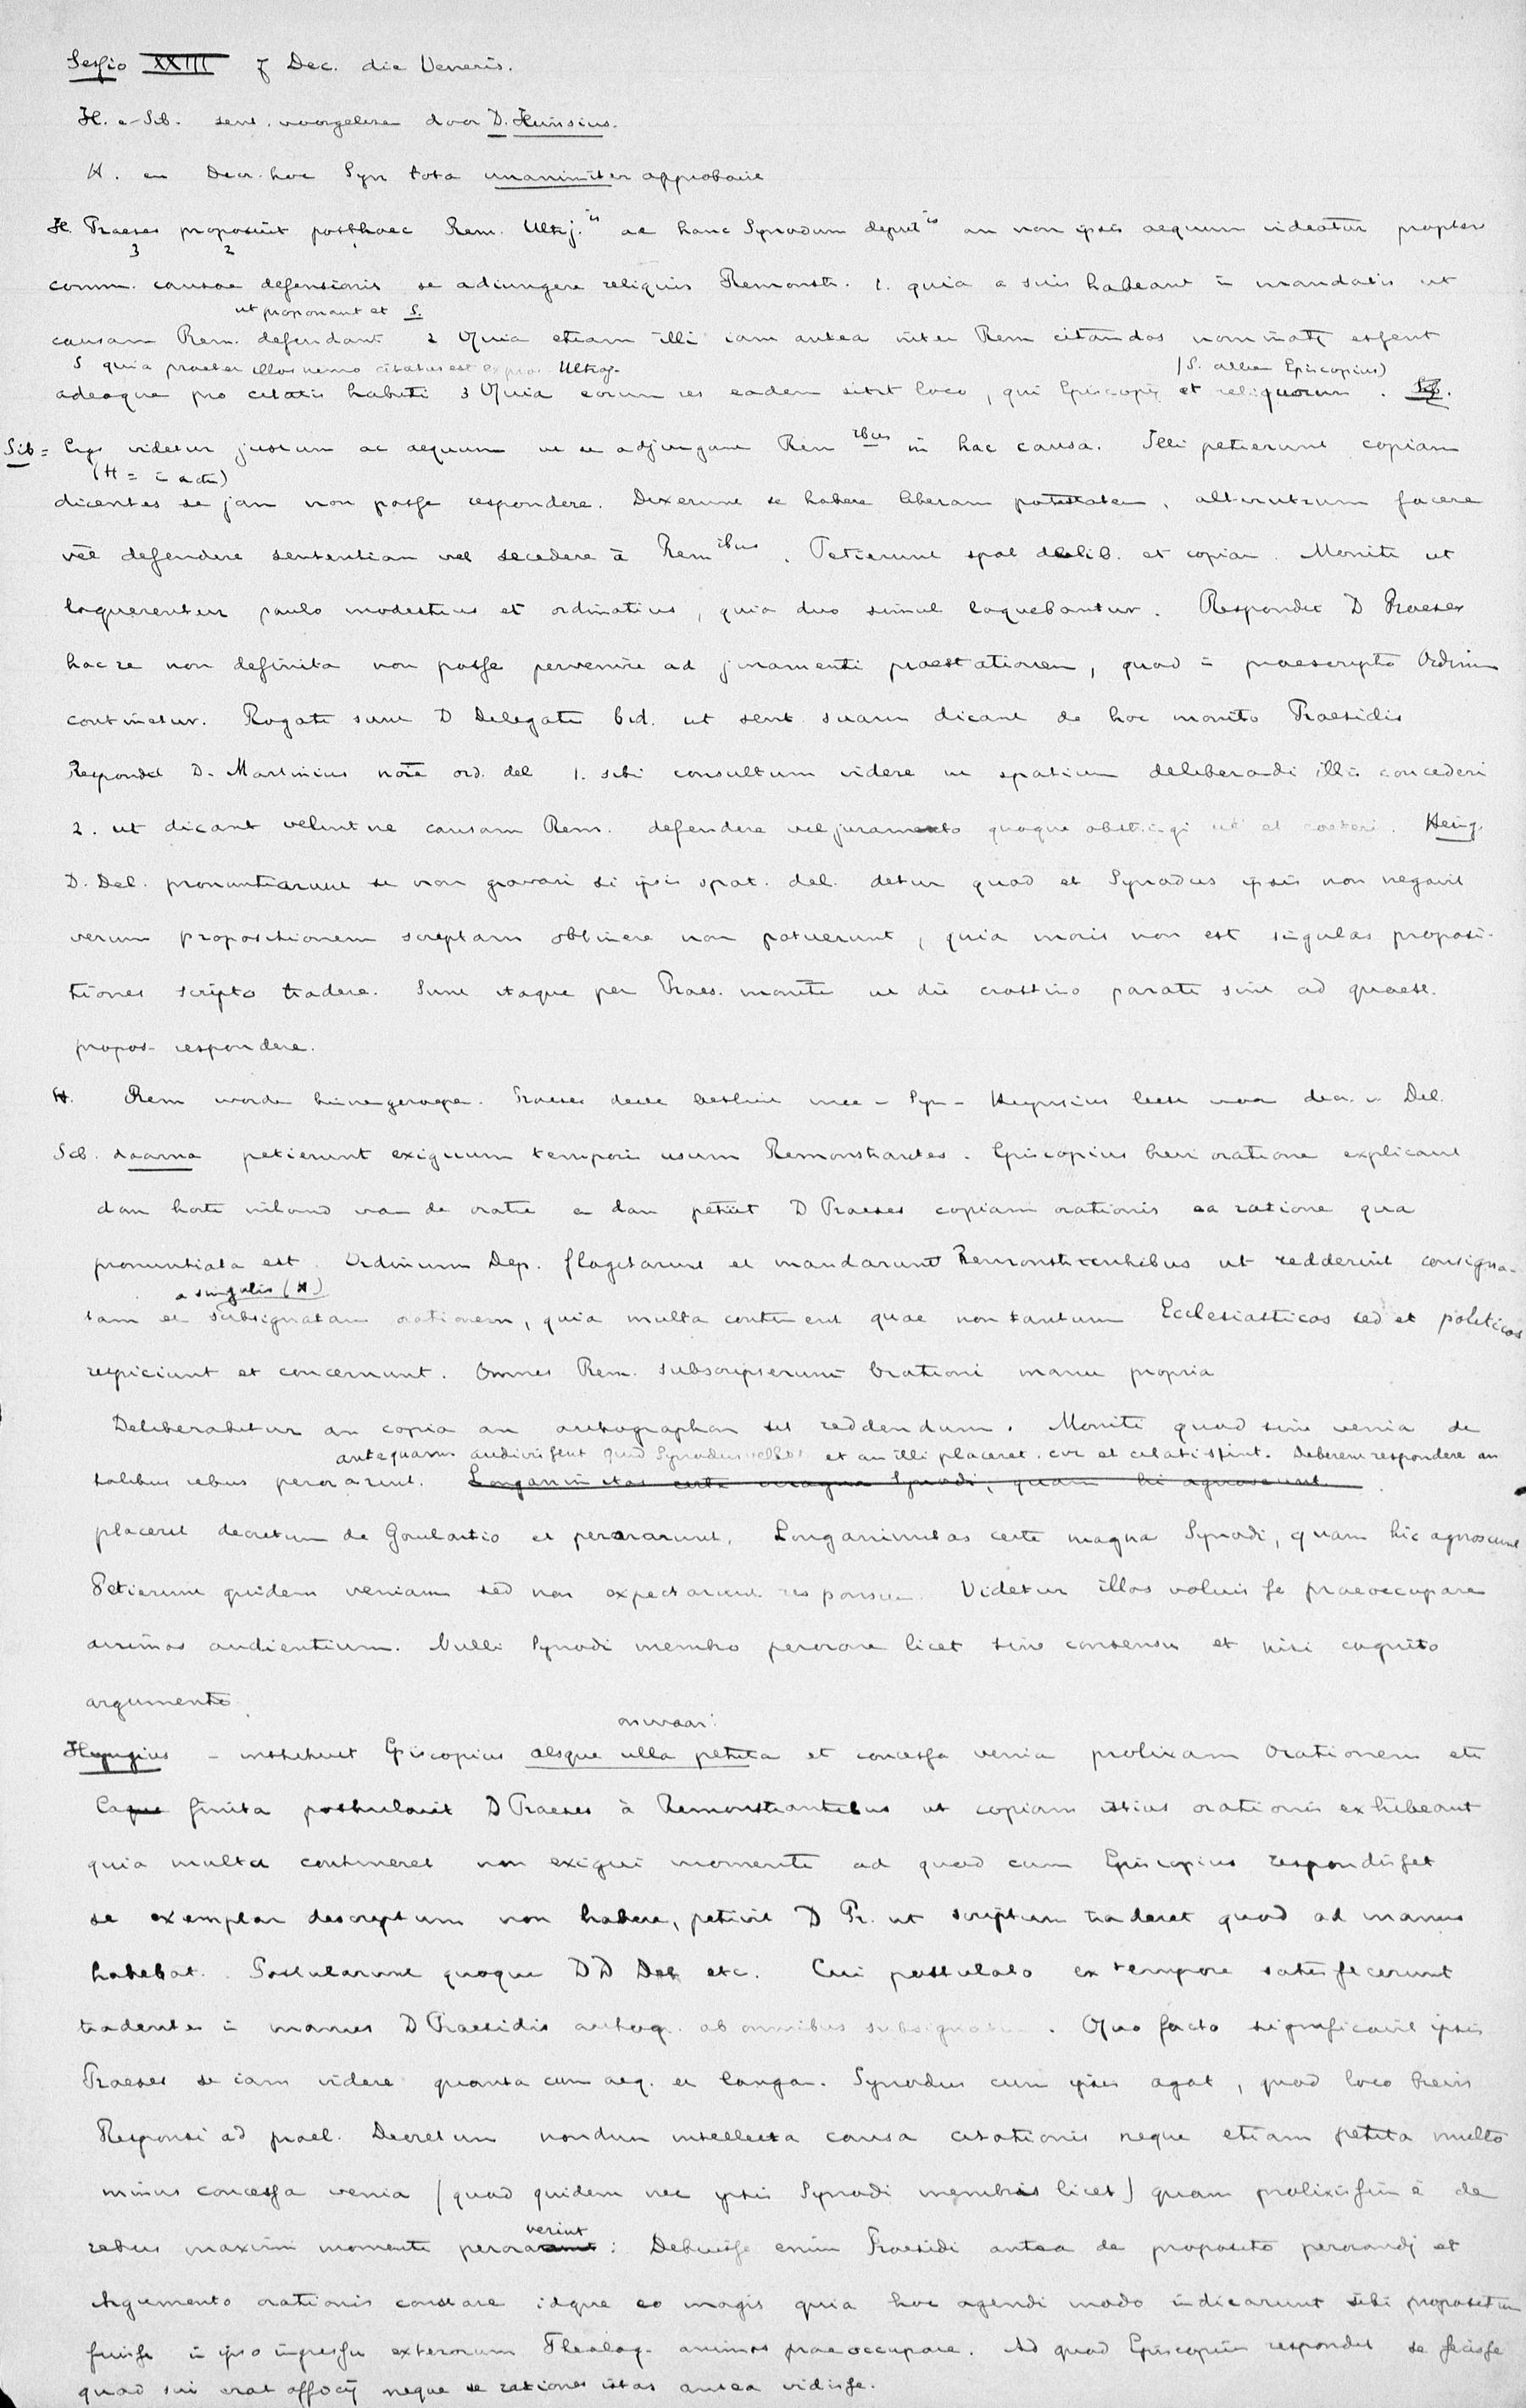 Sessio XXIII 7 Dec. die Veneris.
H. e - Sib. sent. voorgelezen door D. Heinsius.
H. en Decr. hoc Syn tota unanimiter approbavit
H. Praeses proposuit posthaec Rem. Ultraj.is ac hanc Synodum deput.is an non ipsis aequum videatur propter
3 2 1
comm. causae defensionis se adiungere reliquis Remonstr. 1. quia a suis habeant in mandatis ut
ut proponant et S.
causam Rem. defendant 2 Quia etiam illi iam antea inter Rem citandos nominati essent
S quia praeter illos nemo citatus est ex pro. Ultraj.
(S. alleen Episcopius)
adeoque pro citatis habiti 3 Quia eorum res eodem sitit loco, qui Episcopij et reliquorum.
Sib = Ergo videtur justum ac aequum ut se adjungant Rem ibus in hac causa. Illi petierunt copiam
(H = in actu)
dicentes se jam non posse respondere. Dixerunt se habere liberam potestatem, alterutrum facere
vel defendere sententiam vel secedere à Rem ibus. Petierunt spat delib. et copiam. Moniti ut
loquerentur paulo modestius et ordinatius, quia duo simul loquebantur. Respondit D Praeses
hac re non definita non posse pervenire ad juramenti praestationem, quod in praescripto Ordinum
continetur. Rogati sunt D Delegati bid. ut sent suam dicant de hoc monito Praesidis
Respondit D. Martinius noie ord. del 1. sibi consultum videre ut spatium deliberandi illis concederi
2. ut dicant velintne causam Rem. defendere vel juramento quoque obstringi uti et coeteri. Heing.
D. Del. pronuntiarunt se non gravari si ipsis spat. del. detur quod et Synodus ipsis non negavit
verum propositionem scriptam obtinere non potuerunt, quia moris non est singulas proposi-
tiones scripto tradere. Sunt itaque per Praes. moniti ut die crastino parati sint ad quaest.
propos. respondere.
H. Rem worden binnengeroepen. Praeses deelt besluit mee - Syn - Heynsius leest voor decr. v. Del.
Sib. daarna petierunt exiguum temporis usum Remonstrantes. Episcopius brevi oratione explicavit
dan korte inhoud van de oratie en dan petiit D Praeses copiam orationis ea ratione qua
pronuntiata est. Ordinum Dep. flagitarunt et mandarunt Remonstrantibus ut redderent consigna-
a singulis (H)
tam et subsignatam orationem, quia multa continerent quae non tantum Ecclesiasticos sed et politicos
respiciunt et concernunt. Omnes Rem. subscripserunt Orationi manu propria
Deliberabitur an copia an autographon sit reddendum. Moniti quod sine venia de
antequam audivissent quid Synodus vellet et an illi placeret. cur et citati sint. Deberent respondere an
talibus rebus perorarint. Longanimitas certe magna Synodi, quam hi agnoscunt.
placeret decretum de Goulartio et perorarunt. Longanimitas certe magna Synodi, quam hic agnoscunt
Petierunt quidem veniam sed non expectarunt responsum. Videtur illos voluisse praeoccupare
animos audientium. Nulli Synodi membro perorare licet sine consensu et nisi cognito
argumento.
onwaar!
Heyngius - instituit Episcopius absque ulla petita et concessa venia prolixam Orationem etc
Eaque finita postulavit D Praeses à Remonstrantibus ut copiam istius orationis exhibeant
quia multa contineret non exigui momenti ad quod cum Episcopius respondisset
se exemplar descriptum non habere, petivit D Pr. ut scriptum traderet quod ad manus
habebat. Postularunt quoque DD Del. etc. Cui postulato ex tempore satisfecerunt
tradentes in manus D Praesidis autog. ab omnibus subsignatum. Quo facto significavit ipsis
Praeses se iam videre quanta cum aeq. et longa. Synodus cum ipsis agat, quod loco brevis
Responsi ad prael. Decretum nondum intellecta causa citationis neque etiam petita multo
minus concessa venia (quod quidem nec ipsis Synodi membris licet) quam prolixissime de
verint
rebus maximi momenti perorarunt: Debuisse enim Praesidi antea de proposito perorandj et
Argumento orationis constare idque eo magis quia hoc agendi modo indicarunt sibi propositum
fuisse in ipso ingressu exterorum Theolog. animos praeoccupare. Ad quod Episcopius respondit se fecisse
quod sui erat officij neque se rationes istas antea vidisse.